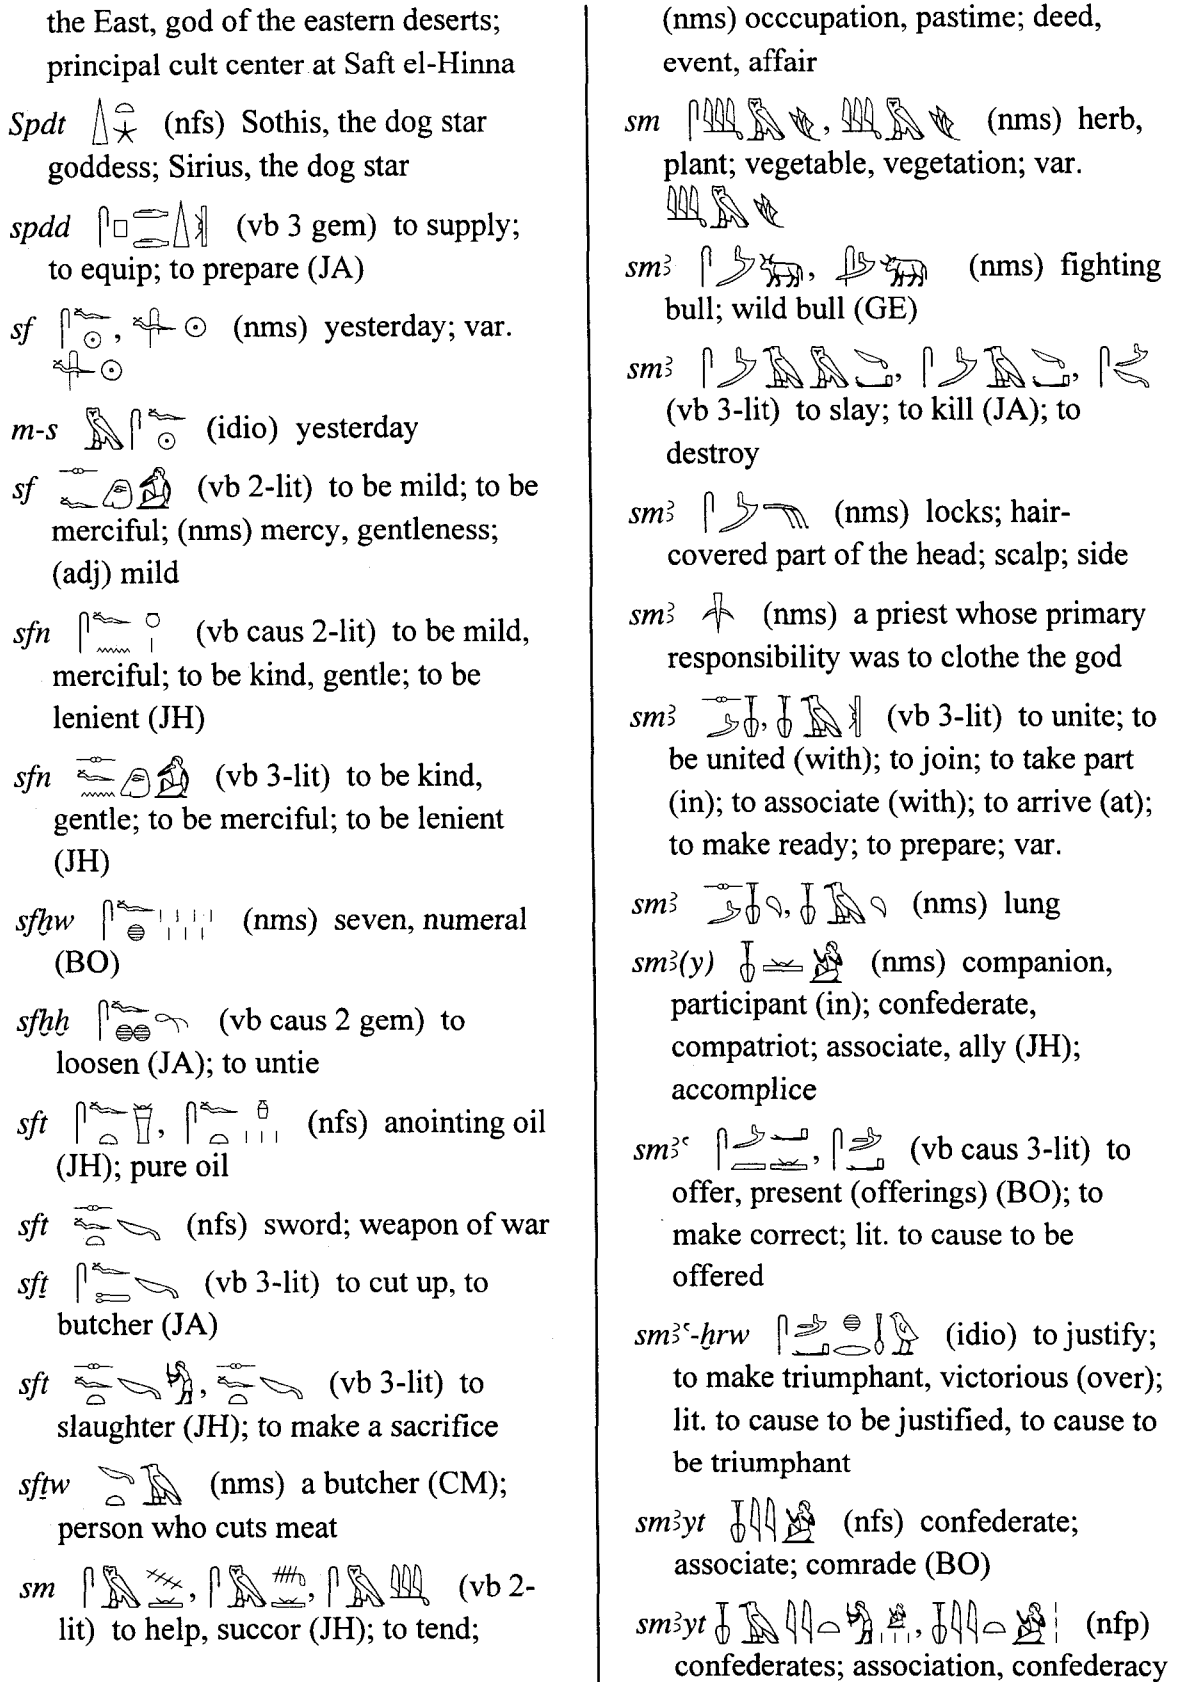 the East, god of the eastern deserts;
principal cult center at Saft el-Hinna
Spdt (nfs) Sothis, the dog star
goddess; Sirius, the dog star
spdd (vb 3 gem) to supply;
to equip; to prepare (JA)
sf (nms) yesterday; var.
m-s (idio) yesterday
sf (vb 2-lit) to be mild; to be
merciful; (nms) mercy, gentleness;
(adj) mild
sfn (vb caus 2-lit) to be mild,
merciful; to be kind, gentle; to be
lenient (JH)
sfn (vb 3-lit) to be kind,
gentle; to be merciful; to be lenient
(JH)
sfḫw (nms) seven, numeral
(BO)
sfḫḫ (vb caus 2 gem) to
loosen (JA); to untie
sft (nfs) anointing oil
(JH); pure oil
sft (nfs) sword; weapon of war
sfṯ (vb 3-lit) to cut up, to
butcher (JA)
sft (vb 3-lit) to
slaughter (JH); to make a sacrifice
sfṯw (nms) a butcher (CM);
person who cuts meat
sm (vb 2-
lit) to help, succor (JH); to tend;
(nms) occcupation, pastime; deed,
event, affair
sm (nms) herb,
plant; vegetable, vegetation; var.
smꜣ (nms) fighting
bull; wild bull (GE)
smꜣ
(vb 3-lit) to slay; to kill (JA); to
destroy
smꜣ (nms) locks; hair-
covered part of the head; scalp; side
smꜣ (nms) a priest whose primary
responsibility was to clothe the god
smꜣ (vb 3-lit) to unite; to
be united (with); to join; to take part
(in); to associate (with); to arrive (at);
to make ready; to prepare; var.
smꜣ (nms) lung
smꜣ(y) (nms) companion,
participant (in); confederate,
compatriot; associate, ally (JH);
accomplice
smꜣꜥ (vb caus 3-lit) to
offer, present (offerings) (BO); to
make correct; lit. to cause to be
offered
smꜣꜥ-ḫrw (idio) to justify;
to make triumphant, victorious (over);
lit. to cause to be justified, to cause to
be triumphant
smꜣyt (nfs) confederate;
associate; comrade (BO)
smꜣyt (nfp)
confederates; association, confederacy